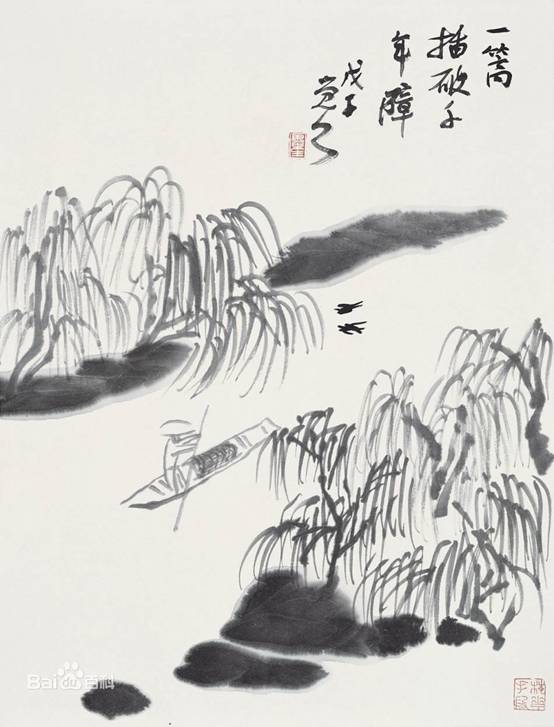 一篙
插破千
年障
戊子
Bai百科